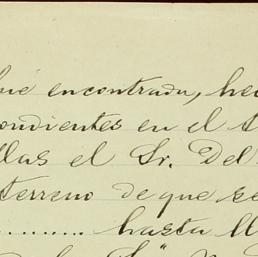 fué encontrada, hec
ondientes en el
llas el Sr. Del
terreno de que se
.......... hasta ll